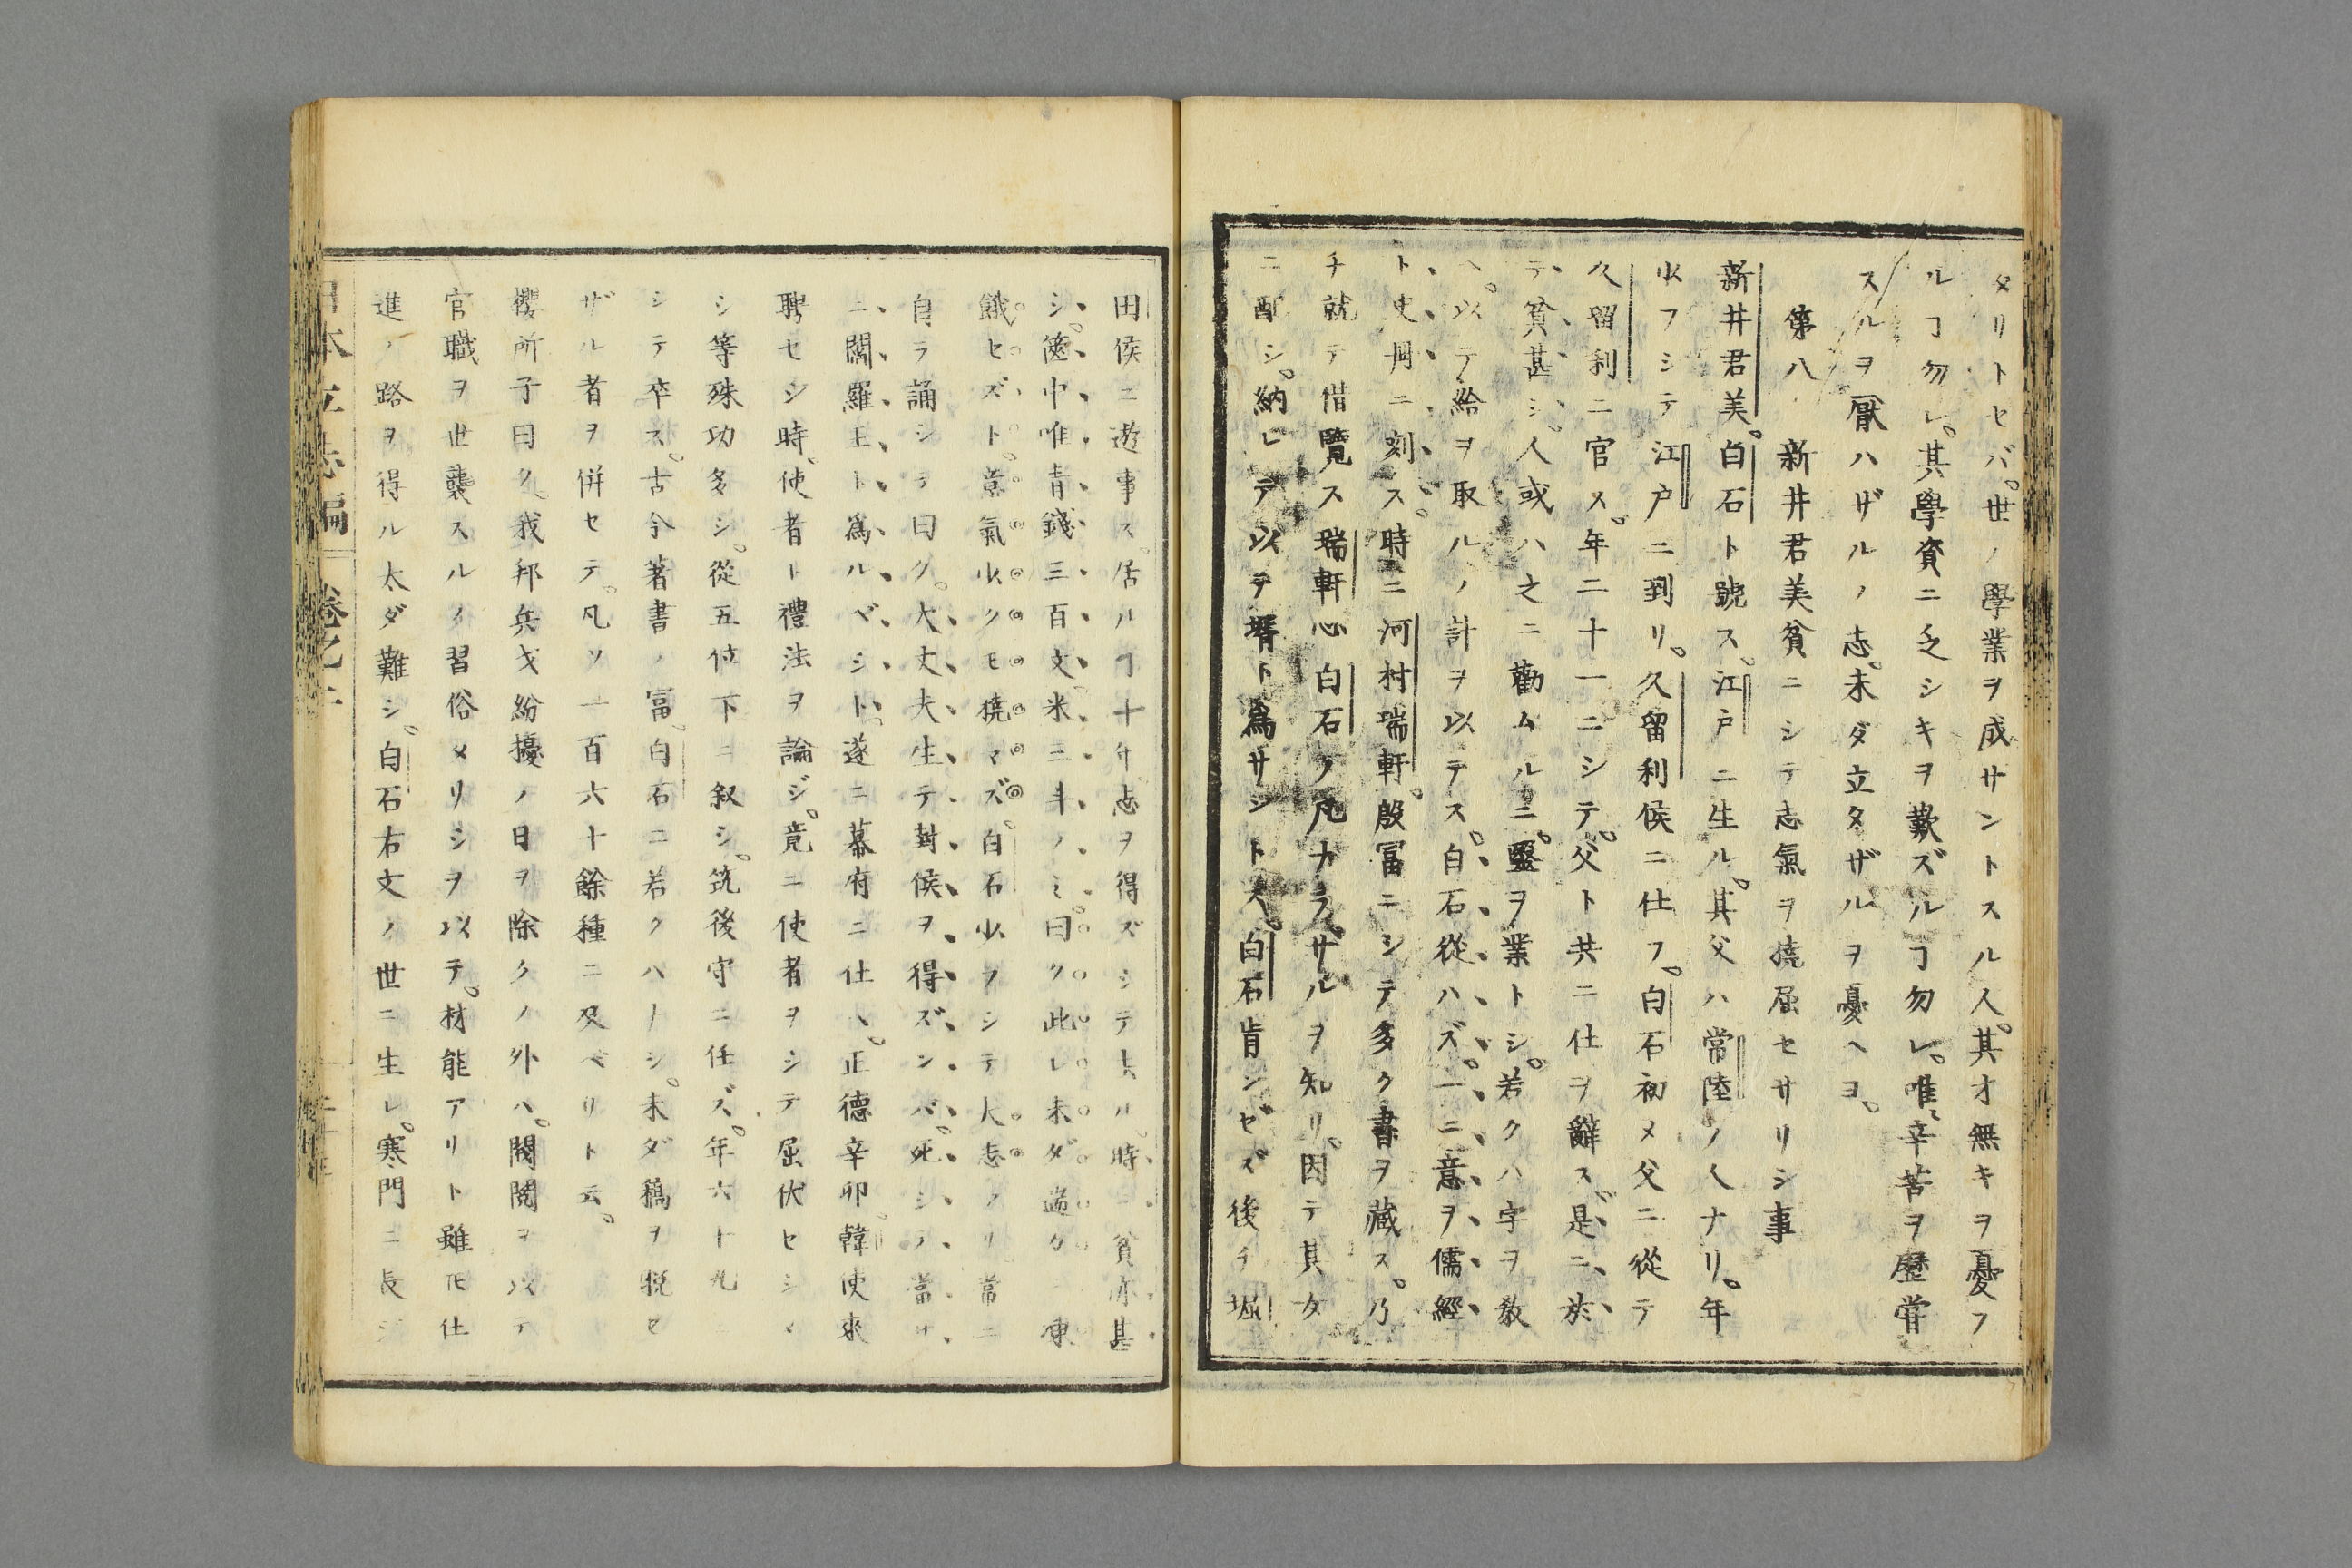 タリトセバ。世ノ學業ヲ成サントスル人。其才無キヲ憂フ
ルヿ勿レ。其學資ニ乏シキヲ歎ズルヿ勿レ。唯、辛苦ヲ歷嘗
スルヲ厭ハザルノ志。未ダ立タザルヲ憂ヘヨ。
第八 新井君美貧ニシテ志氣ヲ撓屈セサリシ事
新井君美。白石ト號ス。江戸ニ生ル。其父ハ常陸ノ人ナリ。年
少フシテ江戸ニ到リ。久留利侯ニ仕フ。白石初メ父ニ從テ
久留利ニ官ス。年二十一ニシテ。父ト共ニ仕ヲ辭ス。是ニ、於
テ、貧甚シ。人或ハ之ニ勸ムルニ。醫ヲ業トシ。若クハ字ヲ教
ヘ。以テ給ヲ取ルノ計ヲ以テス。白石從ハズ。一ニ意ヲ儒經
ト史冊ニ刻ス。時ニ河村瑞軒。殷冨ニシテ多ク書ヲ藏ス。乃
チ就テ借覽ス瑞軒心白石ノ凡ナラサルヲ知リ。因テ其女
ニ配シ。納レテ以テ壻ト爲サシトス。白石肯ンゼズ後チ堀
田侯ニ遊事ス。居ルヿ十年志ヲ得ズシテ去ル。時ニ貧亦甚
シ。篋中唯青錢三百文米三斗ノミ。曰ク此レ未ダ遽カニ凍
餓セズト。意氣少クモ撓マズ。白石少フシテ大志アリ常ニ
自ラ誦シテ曰ク。大丈夫生テ封侯ヲ得ズンバ。死シテ當サ
ニ、閻羅王ト爲ルベシト。遂ニ幕府ニ仕ヘ。正德辛卯。韓使來
聘セシ時。使者ト禮法ヲ論ジ。竟ニ使者ヲシテ屈伏セシム
シ等殊功多シ。從五位下ニ叙シ。筑後守ニ任ズ。年六十九ニ
シテ卒ス。古今著書ノ冨。白石ニ若クハナシ。未ダ稿ヲ脱セ
ザル者ヲ併セテ。凡ソ一百六十餘種ニ及ベリト云。
櫻所子曰ク。我邦兵戈紛擾ノ日ヲ除クノ外ハ。閥閲ヲ以テ
官職ヲ世襲スルノ習俗タリシヲ以テ。材能アリト雖𪜈仕
進ノ路ヲ得ル太ダ難シ。白石右文ノ世ニ生レ。寒門ニ長ジ
日本立志編 卷之二